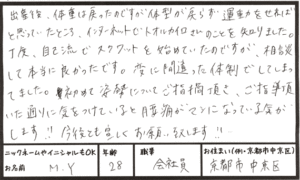 出産後、体重は戻ったのですが体型が戻らず運動をせねば
と思っていたところ、インターネットでトータルケアさんのことを知りました。
丁度、自己流でスクワットを始めていたのですが、相談
して本当に良かったです。常に間違った体制でしてしまっ
てました。初めて姿勢についてご指摘頂き、ご指導頂
いた通りに気をつけていると腰痛がマシになっている気が
します!!今後とも宜しくお願いします!!
ニックネームやイニシャルもOK
お名前 M.Y
年齢 28
職業 会社員
お住まい(例・京都市中京区)
京都市中京区